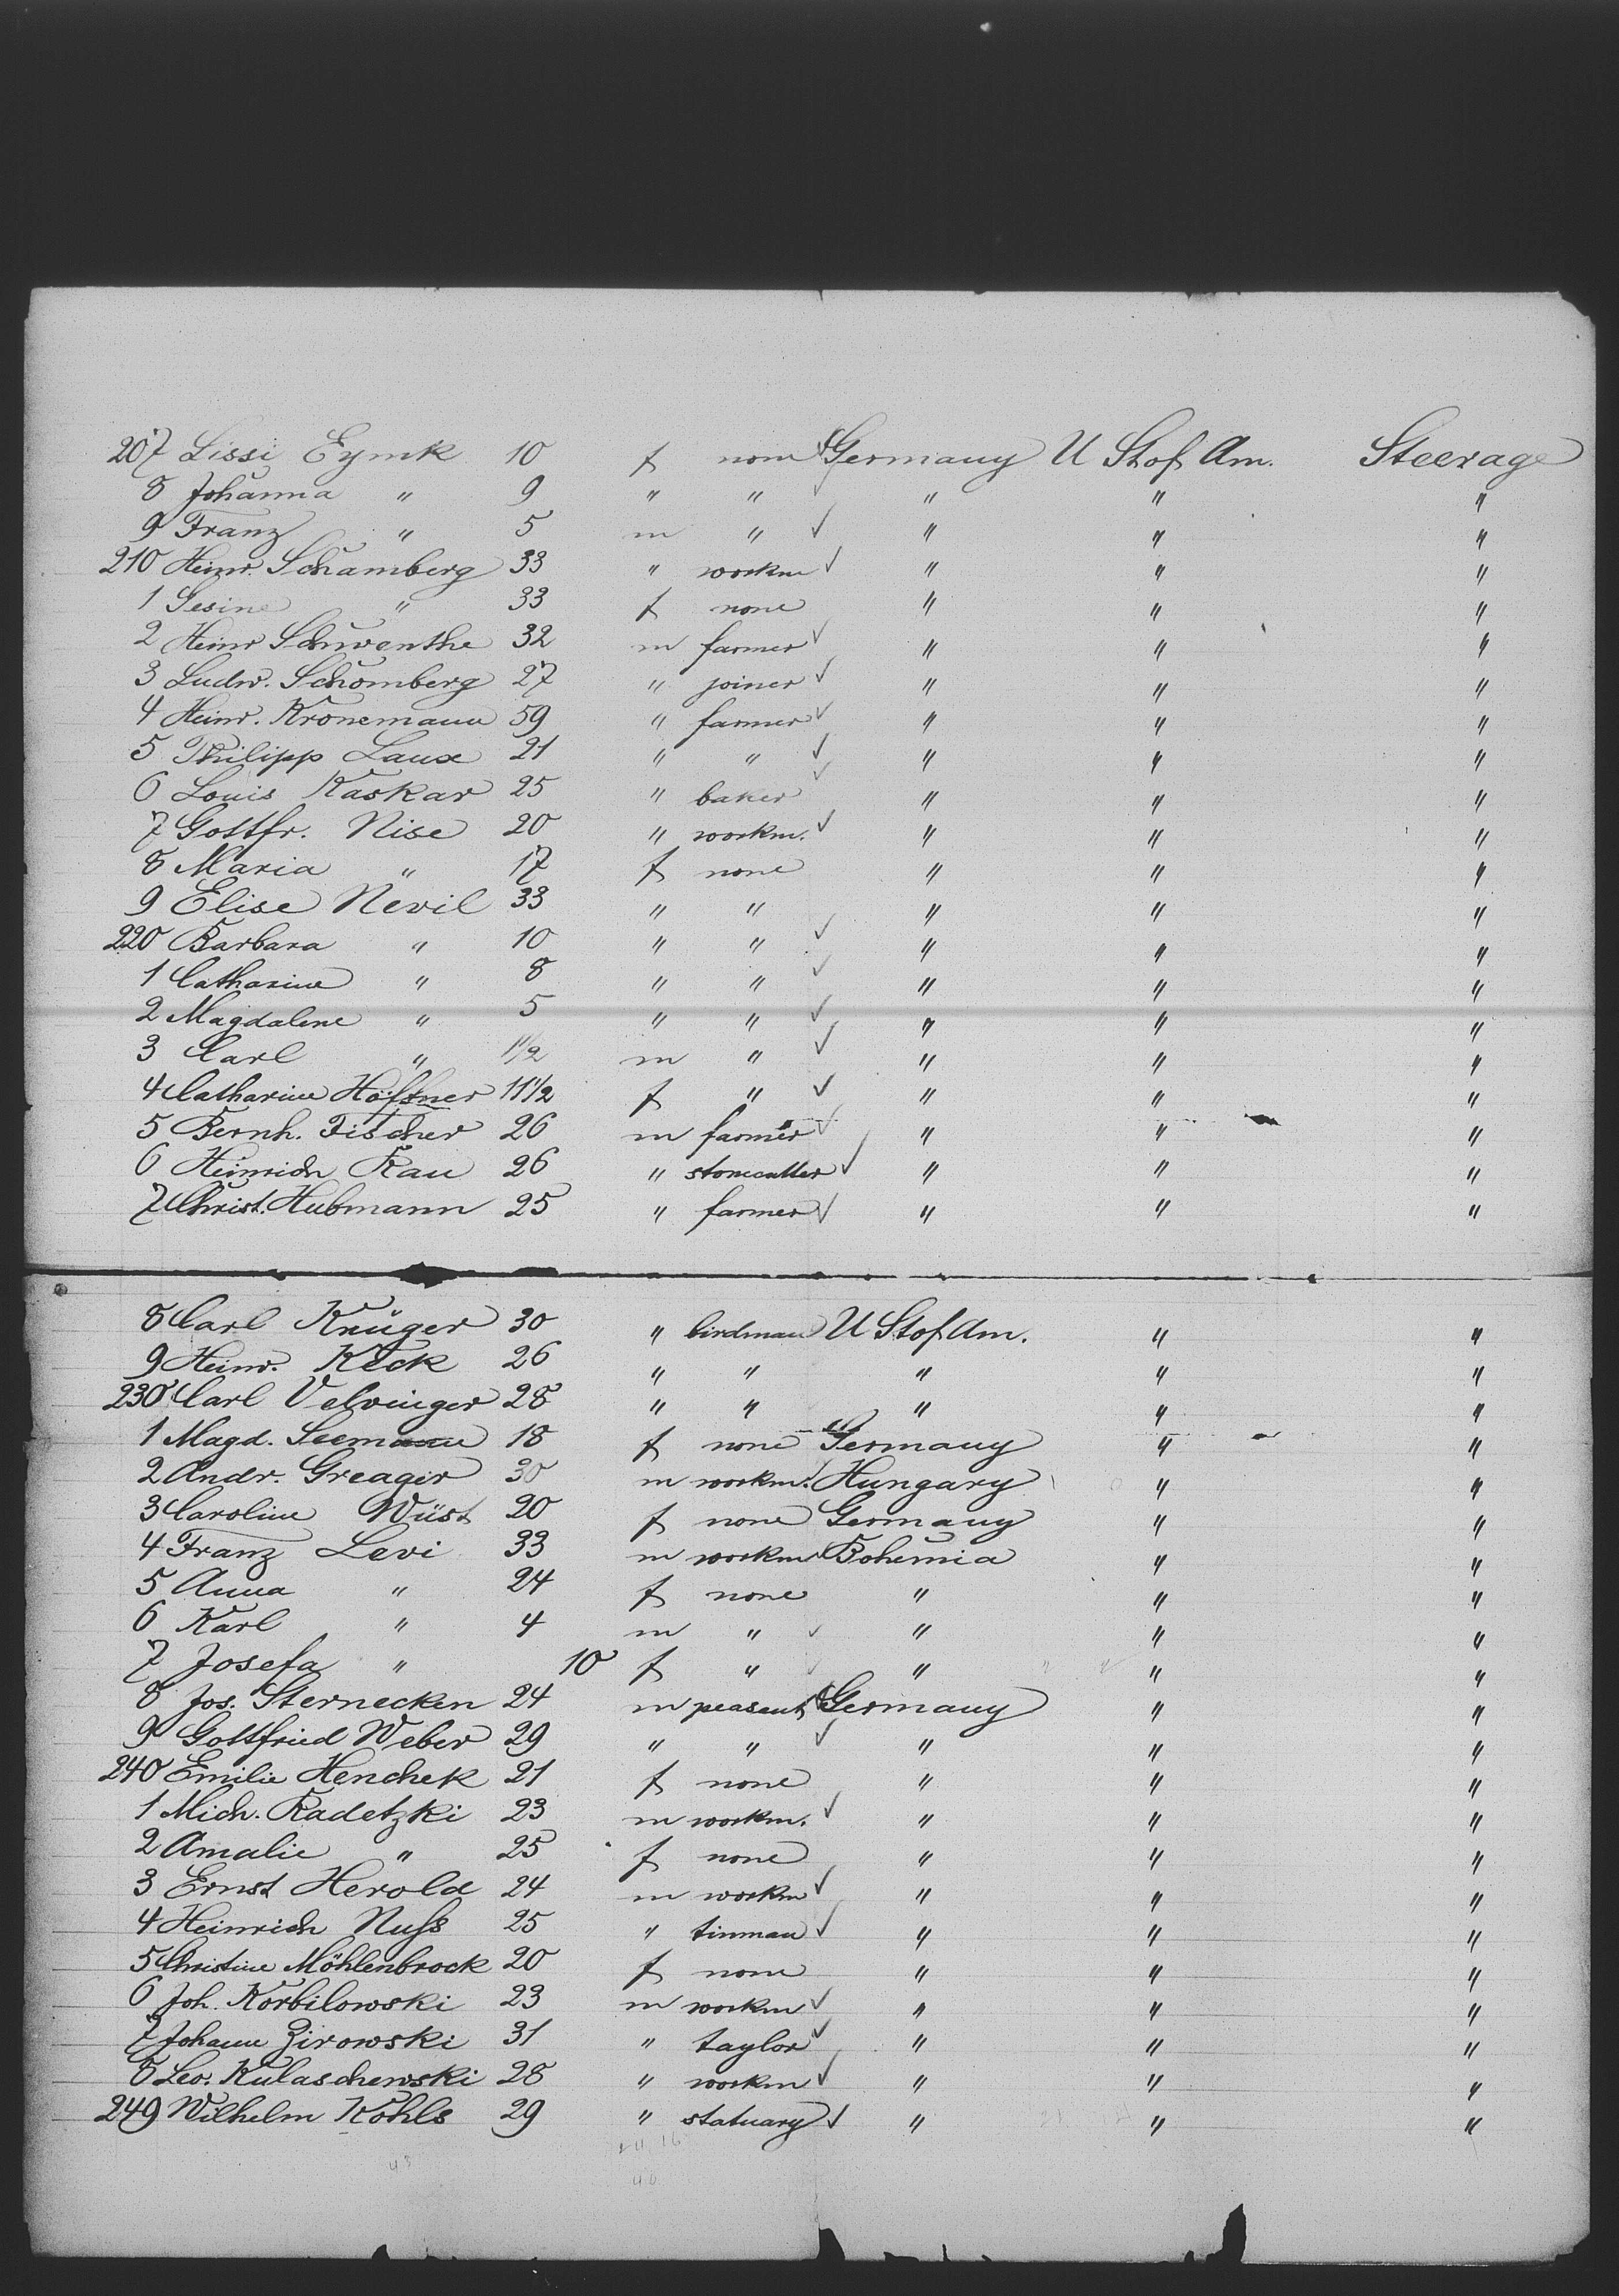 207 Lissi Eymk 10 f none Germany U St of Am. Steerage
8 Johanna " 9 " " " " "
9 Franz " 5 m " " " "
210 Heinr. Schamberg 33 " workm " " "
1 Gesine " 33 f none " " "
2 Heinr Schwenthe 32 m farmer " " "
3 Ludw. Schomberg 27 " joiner " " "
4 Heinr. Kronemann 59 " farmer " " "
5 Philipp Laux 21 " " " " "
6 Louis Kaskar 25 " baker " " "
7 Gottfr. Nise 20 " workm. " " "
8 Maria " 17 f none " " "
9 Elise Nevil 33 " " " " "
220 Barbara " 10 " " " " "
1 Catharine " 8 " " " " "
2 Magdalene " 5 " " " " "
3 Carl " 1 1/2 m " " " "
4 Catharine Höffner 11 1/2 f " " " "
5 Bernh. Fischer 26 m farmer " " "
6 Heinrich Rau 26 " stonecutter " " "
7 Christ. Hubmann 25 " farmer " " "
8 Carl Krüger 30 " birdman U St of Am. " "
9 Heinr. Keck 26 " " " " "
230 Carl Velvinger 28 " " " " "
1 Magd. Seemann 18 f none Germany " "
2 Andr. Greager 30 m workm. Hungary " "
3 Caroline Wüst 20 f none Germany " "
4 Franz Levi 33 m workm Bohemia " "
5 Anna " 24 f none " " "
6 Karl " 4 m " " " "
7 Josefa " 10 f " " " "
8 Jos. Sternecken 24 m peasant Germany " "
9 Gottfried Weber 29 " " " " "
240 Emilie Henchek 21 f none " " "
1 Mich. Radetzki 23 m workm. " " "
2 Amalie " 25 f none " " "
3 Ernst Herold 24 m workm " " "
4 Heinrich Nuſs 25 " tinman " " "
5 Christine Möhlenbrock 20 f none " " "
6 Joh. Korbilowski 23 m workm " " "
7 Johann Zirowski 31 " taylor " " "
8 Leo. Kulaschewski 28 " workm " " "
249 Wilhelm Kohls 29 " statuary " " "